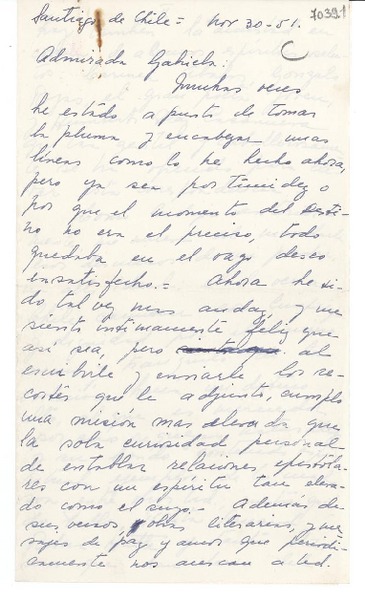 70391
Santiago de Chile = Nov 30-51.
Admirada Gabriela:
Muchas veces
he estado a punto de tomar
la pluma y encabezar unas
líneas como lo he hecho ahora,
pero ya sea por timidez o
por que el momento del desti-
no no era el preciso, todo
quedaba en el vago deseo
insatisfecho.= Ahora he si-
do tal vez mas audaz y me
siento intimamente feliz que
así sea, pero al
escribirle y enviarle los re-
cortes que le adjunto, cumplo
una misión mas elevada que
la sola curiosidad personal
de entablar relaciones epistola-
res con un espíritu tan eleva-
do como el suyo.- Además de
sus versos y obras literarias, y men-
sajes de paz y amor que periodi-
camente nos acercan a Ud.